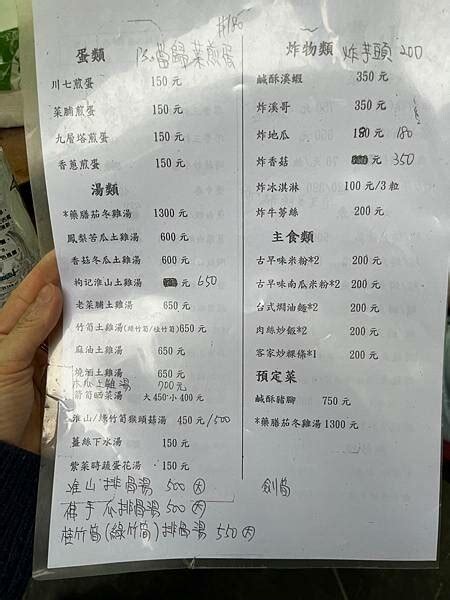 #180
蛋類 150 當歸菜煎蛋
川七煎蛋 150 元
菜脯煎蛋 150 元
九層塔煎蛋 150 元
香蔥煎蛋 150 元
湯類
*藥膳茄冬雞湯 1300 元
鳳梨苦瓜土雞湯 600 元
香菇冬瓜土雞湯 600 元
枸记淮山土雞湯 元 650
老菜脯土雞湯 650 元
竹筍土雞湯(綠竹筍/桂竹筍)650元
麻油土雞湯 650 元
燒酒土雞湯 650 元
木瓜土雞湯 700元
箭筍晒菜湯 大 450·小 400 元
淮山/綠竹筍猴頭菇湯 450 元/500
薑絲下水湯 150 元
紫菜時蔬蛋花湯 150 元
淮山排骨湯 500 大
佛手瓜排骨湯 500 大
桂竹筍(綠竹筍)排骨湯 550大
炸物類 炸芋頭 200
鹹酥溪蝦 350 元
炸溪哥 350 元
炸地瓜 元 180
炸香菇 元 350
炸冰淇淋 100 元/3 粒
炸牛蒡絲 200 元
主食類
古早味米粉*2 200 元
古早味南瓜米粉*2 200 元
台式燜油麵*2 200 元
肉絲炒飯*2 200 元
客家炒粿條*1 200 元
預定菜
鹹酥豬腳 750 元
*藥膳茄冬雞湯 1300 元
劍筍